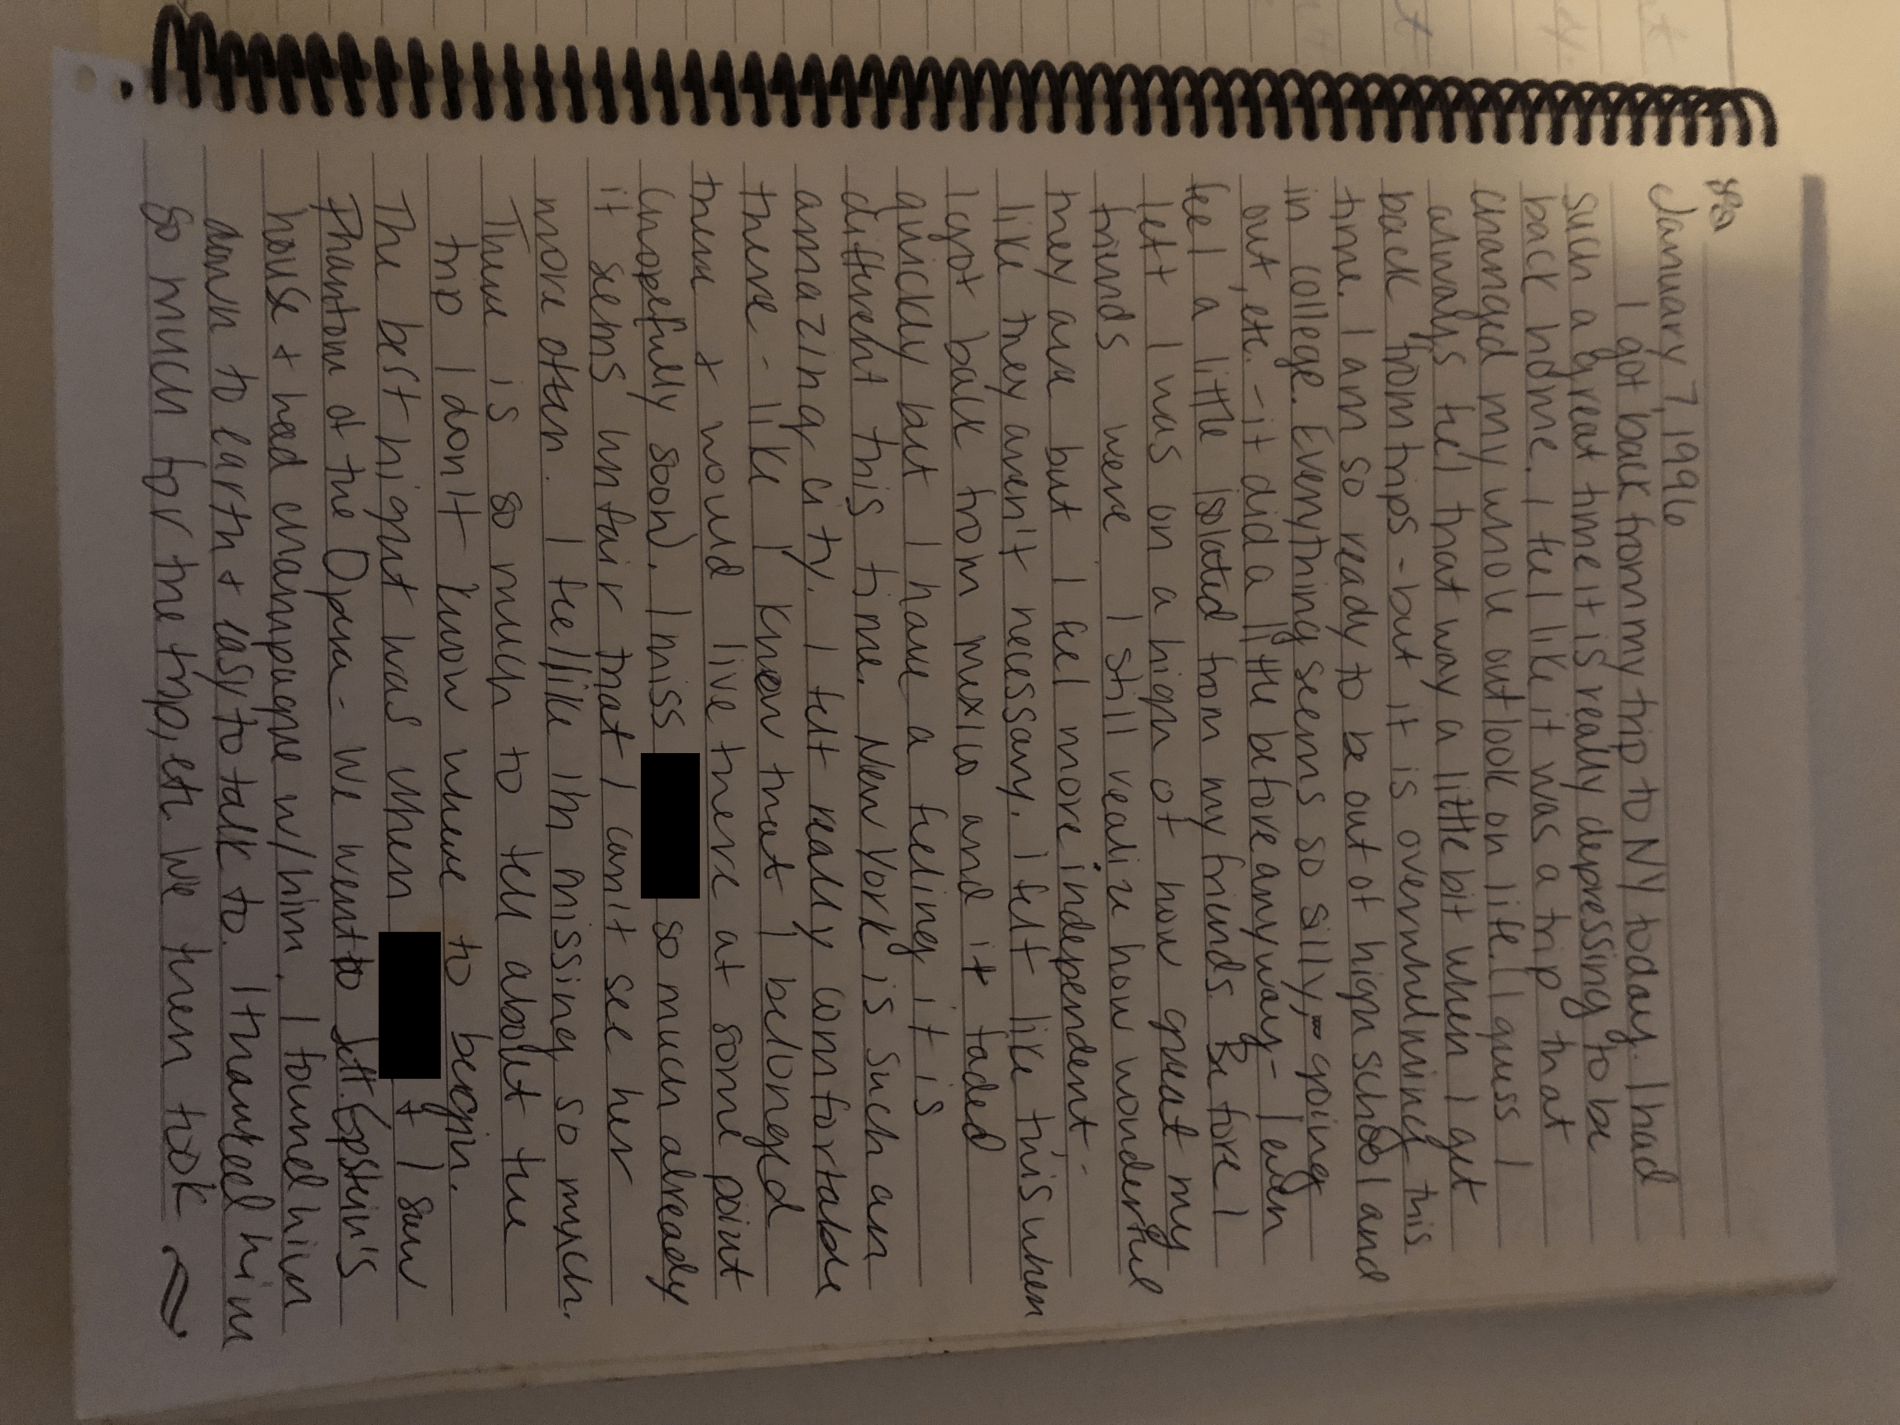 January 7, 1996
I got back from my trip to NY today. I had
such a great time it is really depressing to be
back home. I feel like it was a trip that
changed my whole outlook on life. I guess I
always feel that way a little bit when I get
back from trips - but it is overwhelming this
time. I am so ready to be out of high school and
in college. Everything seems so silly, - going
out, etc. - it did a little before anyway - I even
feel a little isolated from my friends. Before I
left I was on a high of how great my
friends were I still realize how wonderful
they are but I feel more independent -
like they aren't necessary. I felt like this when
I got back from mexico and it faded
quickly but I have a feeling it is
different this time. New York is such an
amazing city. I felt really comfortable
there - like I knew that I belonged
there + would live there at some point
(hopefully soon). I miss so much already
it seems unfair that I can't see her
more often. I feel like I'm missing so much.
There is so much to tell about the
trip I don't know where to begin.
The best night was when + I saw
Phantom of the Opera - We went to Jeff. Epstein's
house + had champagne w/ him. I found him
down to earth + easy to talk to. I thanked him
so much for the trip, etc. We then took